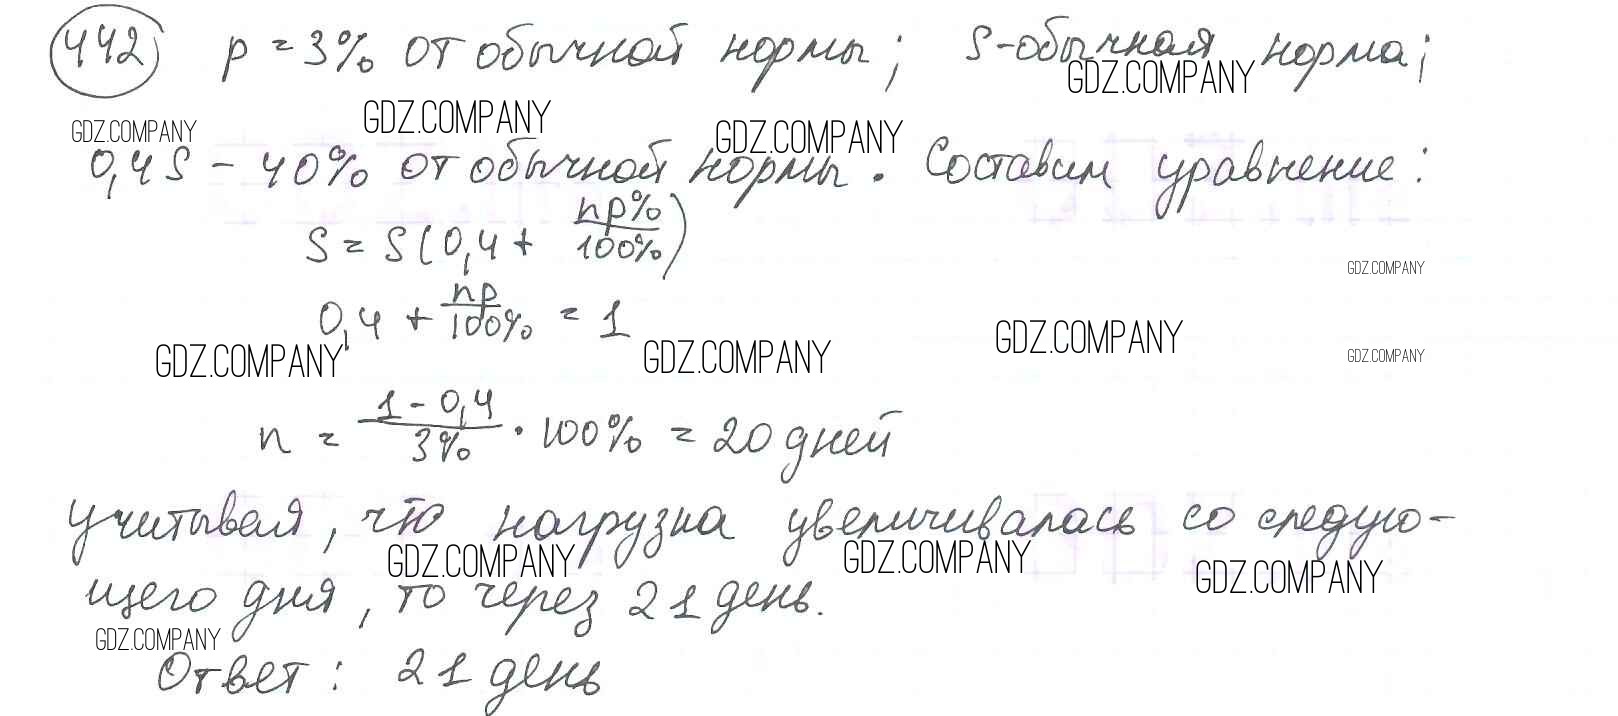 442 p = 3% от обычной нормы; S-обычная норма;
GDZ.COMPANY GDZ.COMPANY GDZ.COMPANY GDZ.COMPANY
0,4S - 40% от обычной нормы. Составим уравнение:
S = S(0,4 + np%/100%)
GDZ.COMPANY
0,4 + np/100% = 1
GDZ.COMPANY GDZ.COMPANY GDZ.COMPANY GDZ.COMPANY
n = (1 - 0,4)/3% · 100% = 20 дней
учитывая, что нагрузка увеличивалась со следую-
GDZ.COMPANY GDZ.COMPANY GDZ.COMPANY
щего дня, то через 21 день.
GDZ.COMPANY
Ответ: 21 день